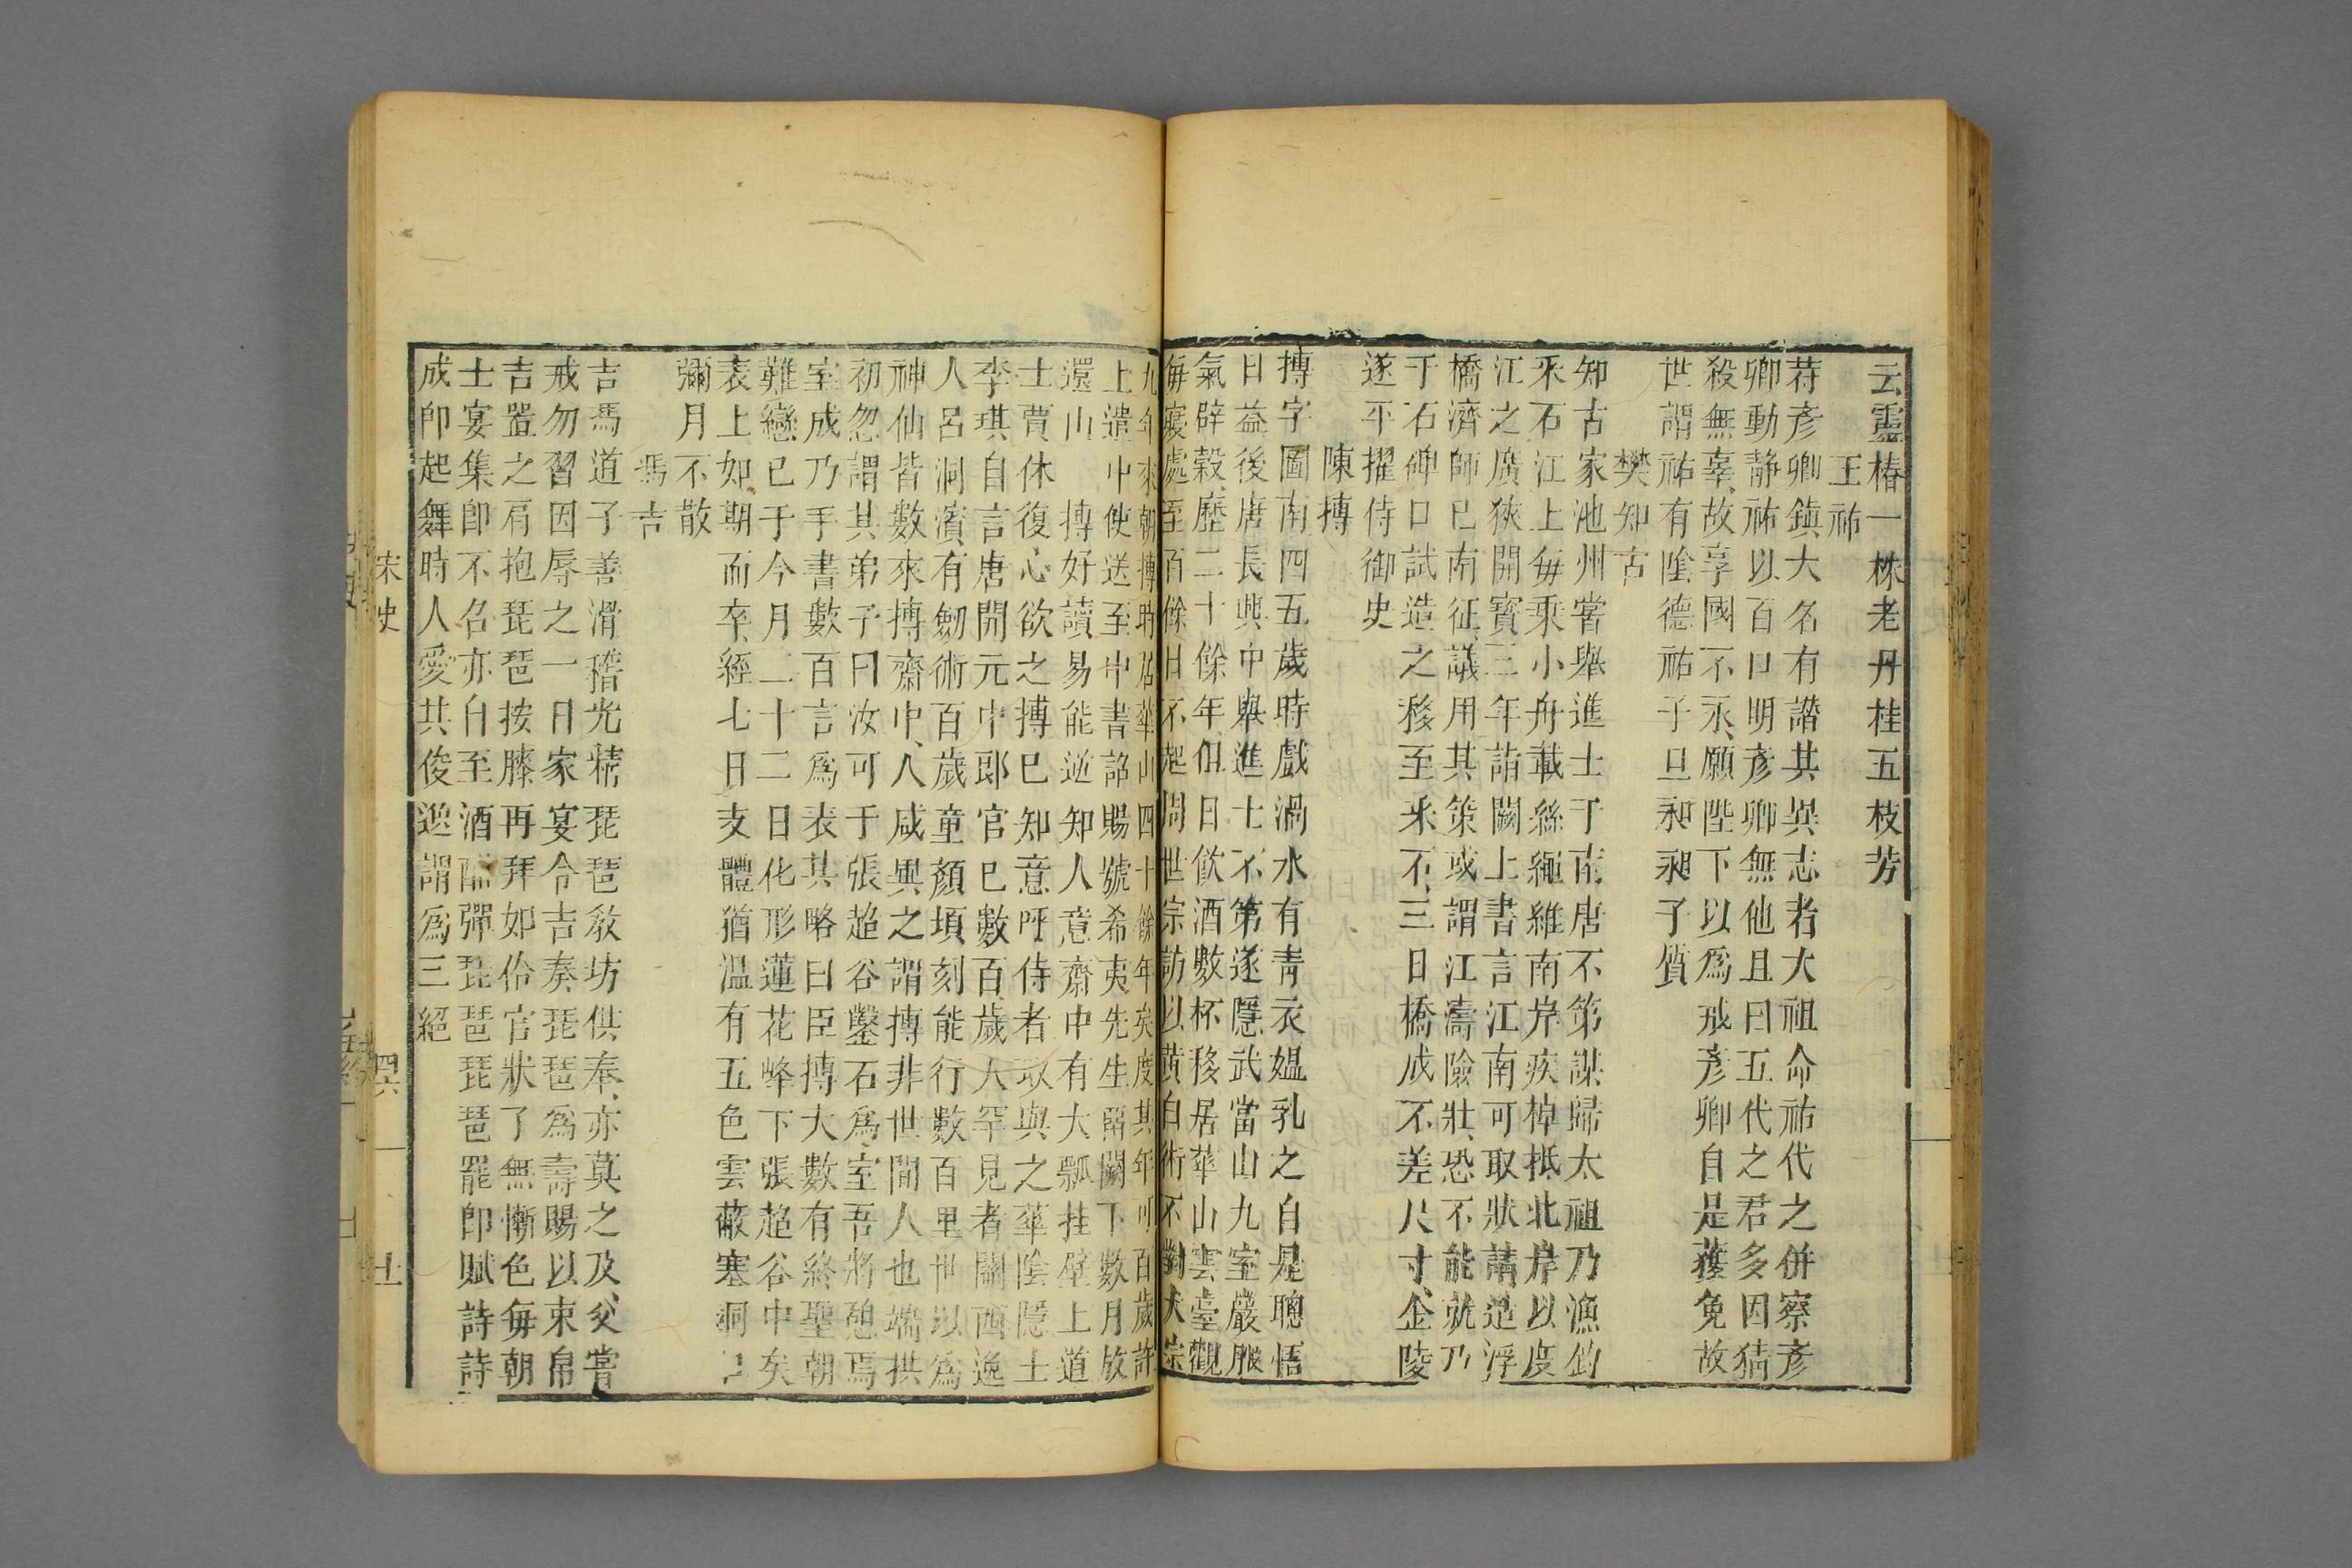 云靈椿一株老丹桂五枝芳
王祐
苻彥卿鎮大名有譖其異志者大祖命祐代之併察彥
卿動靜祐以百口明彥卿無他且曰五代之君多因猜
殺無辜故享國不永願陛下以爲戒彥卿自是獲免故
世謂祐有陰德祐子旦昶昶子質
樊知古
知古家池州嘗舉進士于南唐不第謀歸太祖乃漁釣
采石江上每乘小舟載絲繩維南岸疾棹抵北岸以度
江之廣狹開寶三年詣闕上書言江南可取狀請造浮
橋濟師已南征議用其策或謂江濤險壯恐不能就乃
于石碑口試造之移至采不三日橋成不差尺寸金陵
遂平擢侍御史
陳摶
摶字圖南四五歲時戲渦水有青衣媼乳之自是聰悟
日益後唐長興中舉進士不第遂隱武當山九室巖服
氣辟穀歷二十餘年但日飲酒數杯移居華山雲臺觀
每寢處至百餘日不起周世宗訪以黃白術不對太宗
九年來朝摶時居華山四十餘年矣度其年可百歲許
上遣中使送至中書詔賜號希夷先生留闕下數月放
還山 摶好讀易能逆知人意齋中有大瓢挂壁上道
士賈休復心欲之摶已知意呼侍者取與之華陰隱士
李琪自言唐開元中郎官已數百歲人罕見者關西逸
人呂洞濱有劒術百歲童顏頃刻能行數百里世以爲
神仙皆數來摶齋中人咸異之謂摶非世間人也端拱
初忽謂其弟子曰汝可于張超谷鑿石爲室吾將憩焉
室成乃手書數百言爲表其略曰臣摶大數有終聖朝
難戀已于今月二十二日化形蓮花峰下張超谷中矣
表上如期而卒經七日支體猶溫有五色雲蔽塞洞口
彌月不散
馮吉
吉馮道子善滑稽尤精琵琶教坊供奉亦莫之及父嘗
戒勿習因辱之一日家宴令吉奏琵琶爲壽賜以束帛
吉置之肩抱琵琶按膝再拜如伶官狀了無慚色每朝
士宴集卽不名亦自至酒酣彈琵琶琵琶罷卽賦詩詩
成卽起舞時人愛其俊逸謂爲三絕
宋史 四六 十